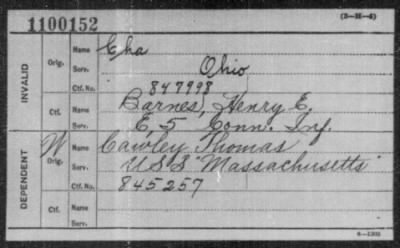 1100152
(3-H-4)
INVALID
Orig. Name Cha
Serv. Ohio
Ctf. No. 847998
Ctf. Name Barnes, Henry E.
Serv. E, 5 Conn. Inf.
DEPENDENT
W Orig. Name Cawley Thomas
Serv. U.S.S "Massachusetts"
Ctf. No. 845257
Ctf. Name
Serv.